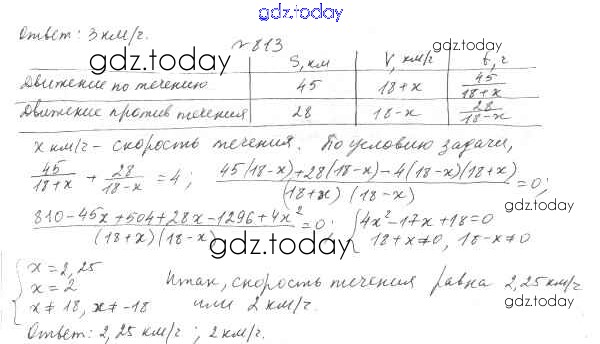 gdz.today
Ответ: 3 км/ч.
gdz.today
№ 813
gdz.today
S, км V, км/ч t, ч
Движение по течению 45 18+x 45/(18+x)
Движение против течения 28 18-x 28/(18-x)
gdz.today
x км/ч - скорость течения. По условию задачи,
45/(18+x) + 28/(18-x) = 4; (45(18-x)+28(18-x)-4(18-x)(18+x))/((18+x)(18-x)) = 0;
gdz.today
(810-45x+504+28x-1296+4x²)/((18+x)(18-x)) = 0; { 4x²-17x+18=0
18+x≠0, 18-x≠0
gdz.today
gdz.today
{ x = 2,25
x = 2
x ≠ 18, x ≠ -18
Итак, скорость течения равна 2,25 км/ч
или 2 км/ч.
gdz.today
Ответ: 2,25 км/ч; 2 км/ч.